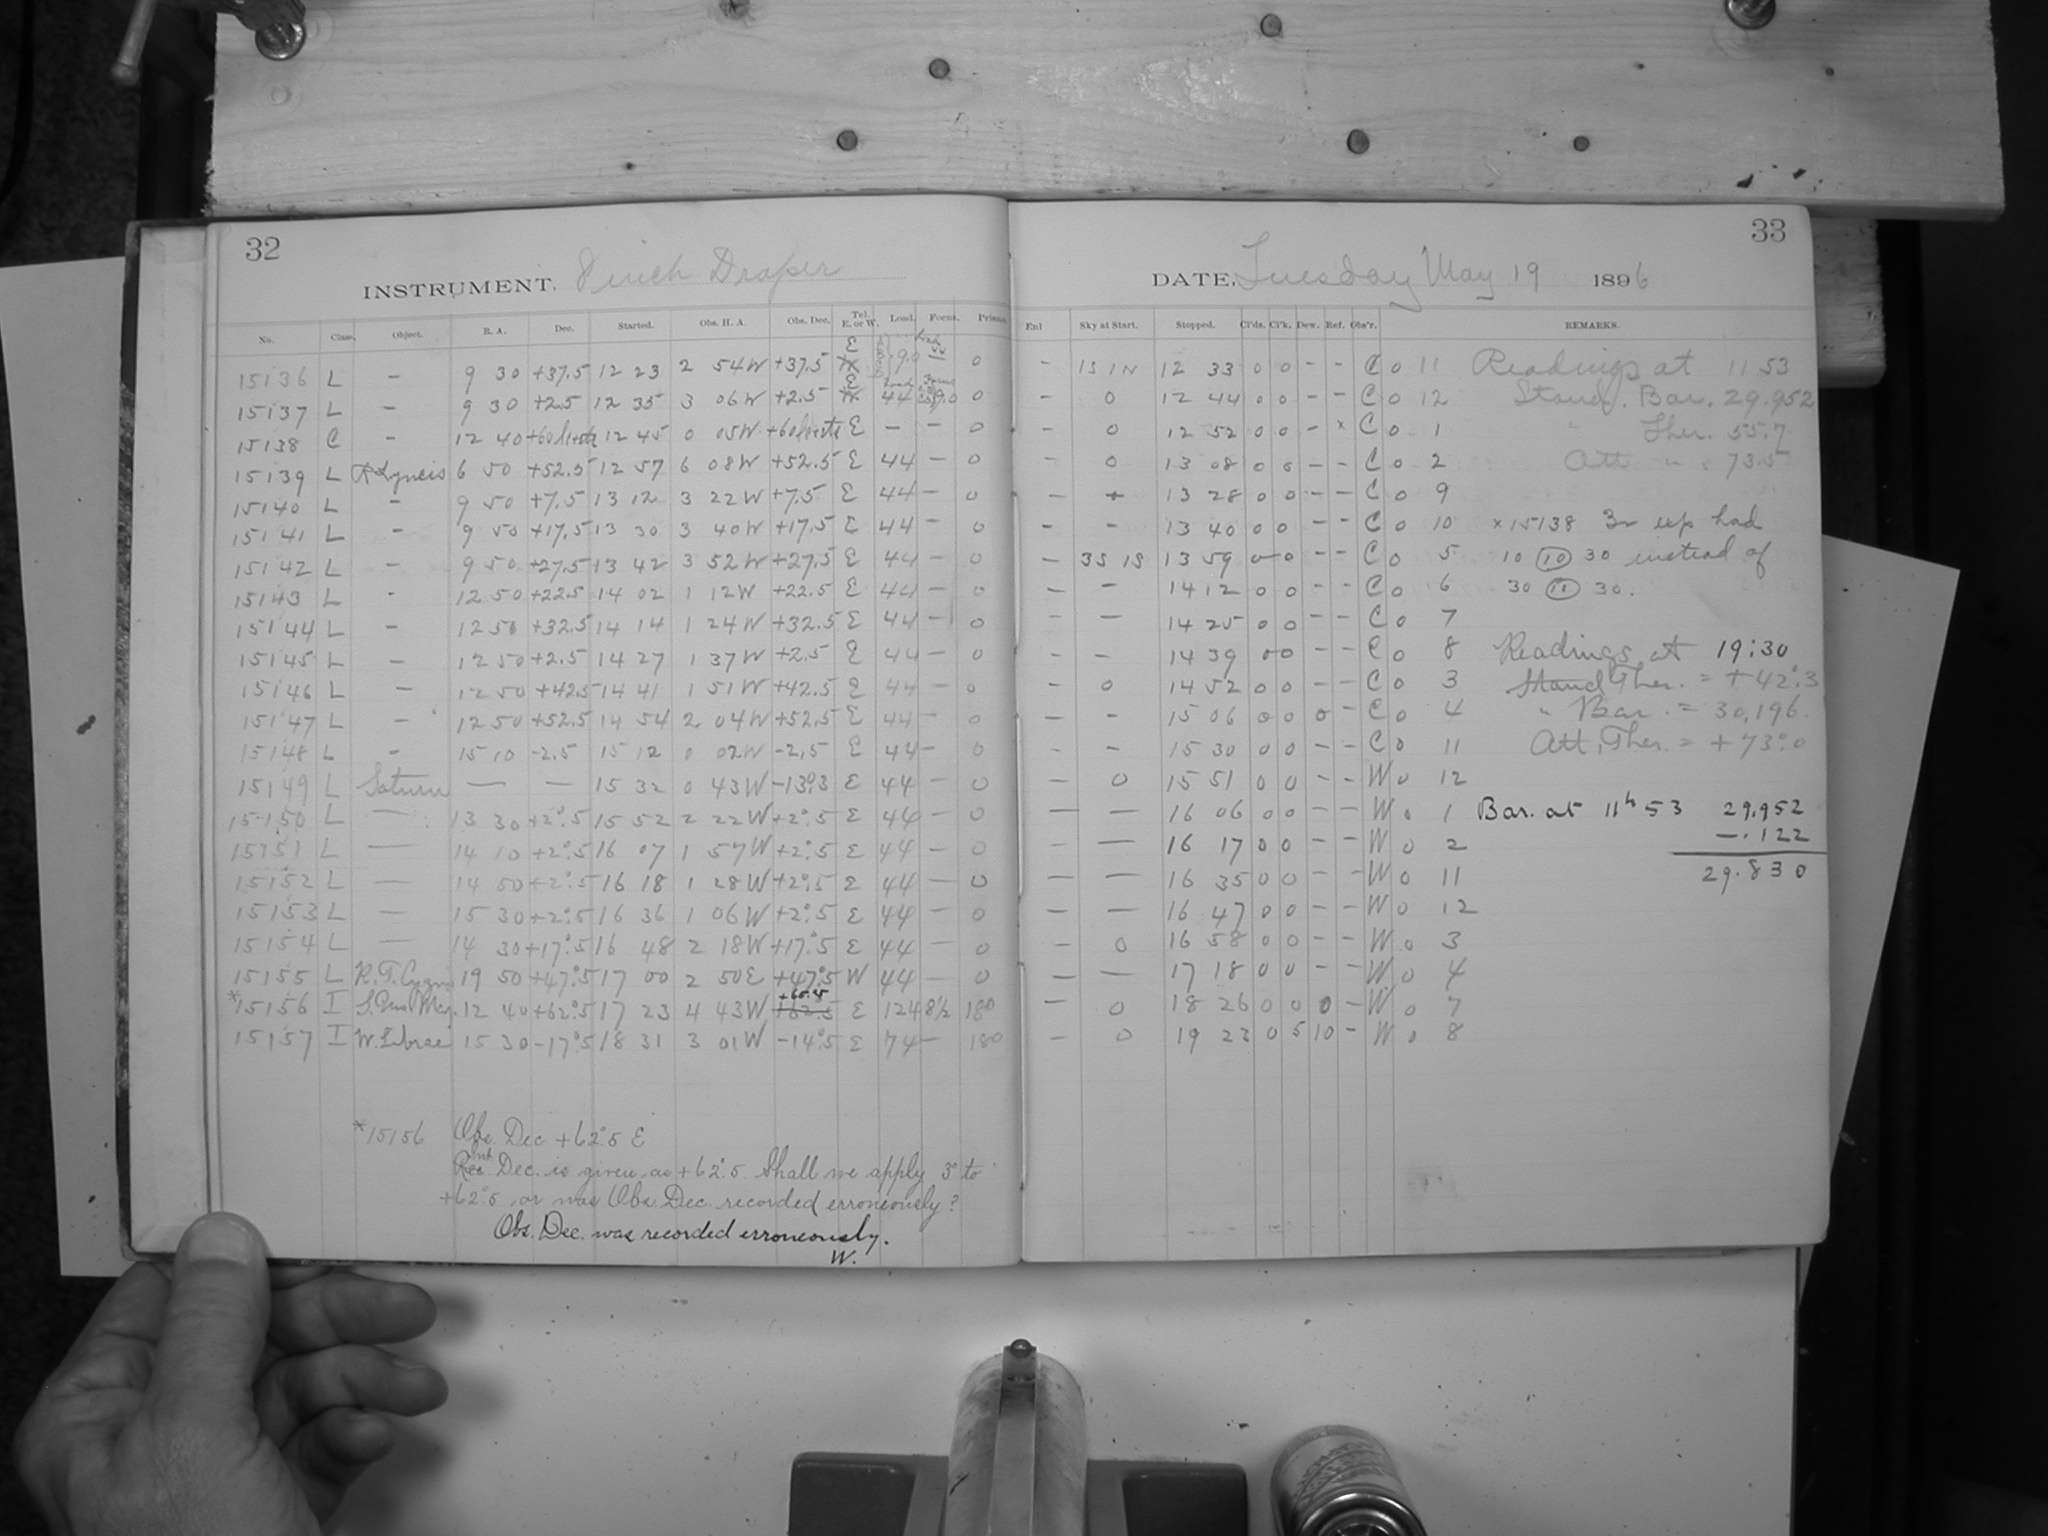 32
INSTRUMENT. 8 inch Draper
No. Class. Object. R. A. Dec. Started. Obs. H. A. Obs. Dec. Tel. E. or W. Load. Focus. Prisms.
15136 L - 9 30 +37.5 12 23 2 54W +37.5 E 9.0 0
15137 L - 9 30 +2.5 12 35 3 06W +2.5 E 44 9.0 0
15138 C - 12 40 +60 12 45 0 05W +60 E - - 0
15139 L R Lyncis 6 50 +52.5 12 57 6 08W +52.5 E 44 - 0
15140 L - 9 50 +7.5 13 12 3 22W +7.5 E 44 - 0
15141 L - 9 50 +17.5 13 30 3 40W +17.5 E 44 - 0
15142 L - 9 50 +27.5 13 42 3 52W +27.5 E 44 - 0
15143 L - 12 50 +22.5 14 02 1 12W +22.5 E 44 - 0
15144 L - 12 50 +32.5 14 14 1 24W +32.5 E 44 - 0
15145 L - 12 50 +2.5 14 27 1 37W +2.5 E 44 - 0
15146 L - 12 50 +42.5 14 41 1 51W +42.5 E 44 - 0
15147 L - 12 50 +52.5 14 54 2 04W +52.5 E 44 - 0
15148 L - 15 10 -2.5 15 12 0 02W -2.5 E 44 - 0
15149 L Saturn — — 15 32 0 43W -13°.3 E 44 - 0
15150 L — 13 30 +2°.5 15 52 2 22W +2°.5 E 44 - 0
15151 L — 14 10 +2°.5 16 07 1 57W +2°.5 E 44 - 0
15152 L — 14 50 +2°.5 16 18 1 28W +2°.5 E 44 - 0
15153 L — 15 30 +2°.5 16 36 1 06W +2°.5 E 44 - 0
15154 L — 14 30 +17°.5 16 48 2 18W +17°.5 E 44 - 0
15155 L R.T. Cygni 19 50 +47°.5 17 00 2 50E +47°.5 W 44 — 0
+65.5
*15156 I S. Urs. Maj. 12 40 +62°.5 17 23 4 43W +62.5 E 124 8½ 180
15157 I W. Librae 15 30 -17°.5 18 31 3 01W -14°.5 E 74 - 180
*15156 Obs. Dec. +62°.5 E
Dec. is given as +62°.5. Shall we apply 3° to
+62°.5, or was Obs. Dec. recorded erroneously?
Obs. Dec. was recorded erroneously.
W.
33
DATE, Tuesday May 19 1896
Enl Sky at Start. Stopped. Cl'ds. Cl'k. Dew. Ref. Obs'r. REMARKS.
- 1S 1N 12 33 0 0 - - C 0 11 Readings at 11 53
- 0 12 44 0 0 - - C 0 12 Stand. Bar. 29.952
- 0 12 52 0 0 - x C 0 1 " Ther. 55.7
- 0 13 08 0 0 - - C 0 2 Att. " 73.5
- + 13 28 0 0 - - C 0 9
- - 13 40 0 0 - - C 0 10 x 15138 3rd exp had
- 3S 1S 13 59 0 0 - - C 0 5 10 (10) 30 instead of
- - 14 12 0 0 - - C 0 6 30 (11) 30.
- - 14 25 0 0 - - C 0 7
- - 14 39 0 0 - - C 0 8 Readings at 19:30
- 0 14 52 0 0 - - C 0 3 Stand Ther. = +42°.3
- - 15 06 0 0 0 - C 0 4 " Bar. = 30,196.
- - 15 30 0 0 - - C 0 11 Att. Ther. = +73°.0
- 0 15 51 0 0 - - W 0 12
— — 16 06 0 0 - - W 0 1 Bar. at 11h 53 29.952
— — 16 17 0 0 - - W 0 2 -.122
— — 16 35 0 0 - - W 0 11 29.830
— — 16 47 0 0 - - W 0 12
- 0 16 58 0 0 - - W 0 3
— — 17 18 0 0 - - W 0 4
- 0 18 26 0 0 0 - W 0 7
- 0 19 23 0 5 10 - W 0 8